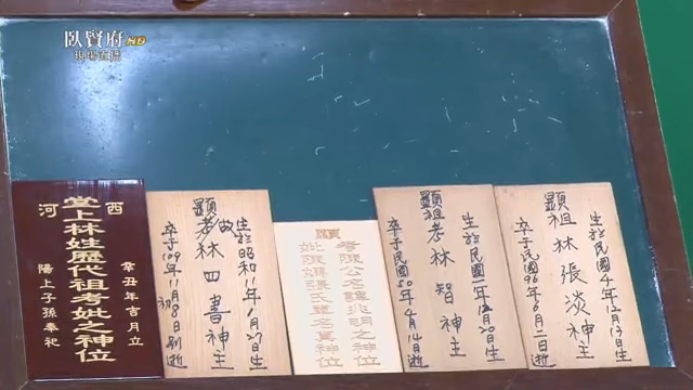 臥賢府HD
現場直播
西河
堂上林姓歷代祖考妣之神位
辛丑年吉月立
陽上子孫奉祀
生於昭和11年1月29日生
顯考林四書神主
卒于109年11月8日別逝
顯
考陳公名諱兆明之神位
生於民國一年12月20日生
顯祖考林智神主
卒于民國50年4月14日逝
生於民國4年12月13日生
顯祖林張淡神主
卒于民國96年6月二日逝